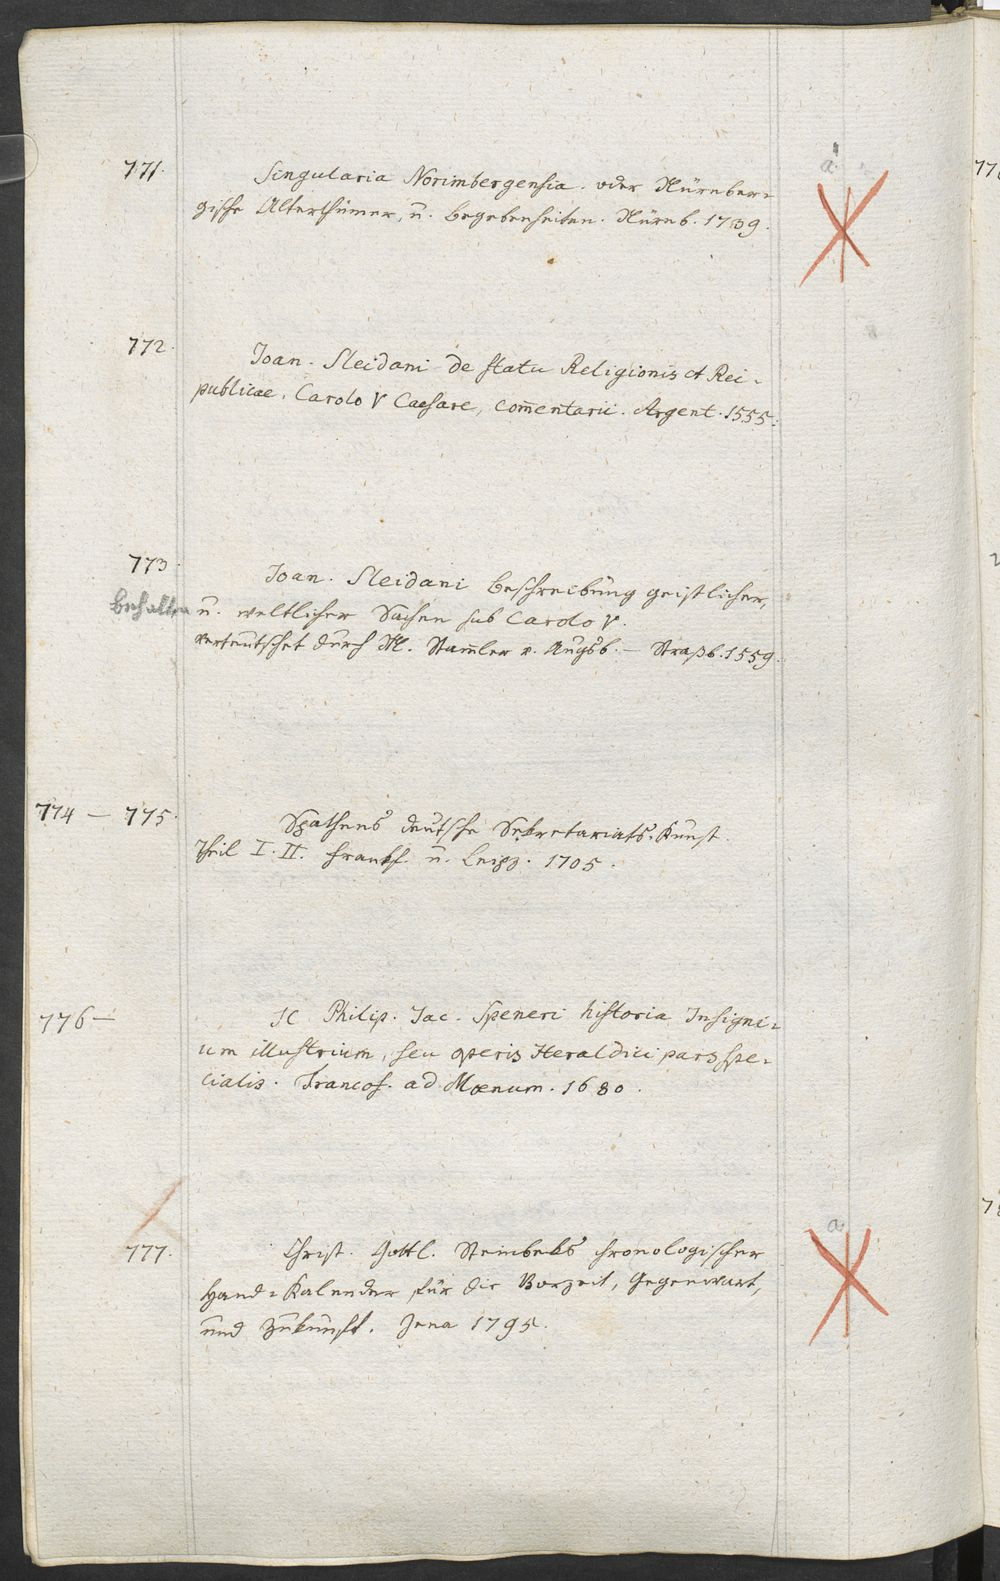 771. Singularia Norimbergensia. oder Nürnber=
gische Alterthümer, u. Begebenheiten. Nürnb. 1739.
a
772. Joan. Sleidani de statu Religionis et Rei=
publicae, Carolo V Caesare, com̄entarii. Argent. 1555.
773. Joan. Sleidani Beschreibung geistlicher,
behalten u. weltlicher Sachen sub Carolo V.
verteutschet durch M. Stam̄ler v. Augsb. — Straßb. 1559.
774 — 775. Spathens deutsche Sekretariats-Kunst.
Theil I. II. Frankf. u. Leipz. 1705.
776 — Philip. Jac. Speneri historia Insigni=
um illustrium, seu operis Heraldici pars spe=
cialis. Francof. ad Moenum. 1680.
777. Christ. Gottl. Steinbeks chronologischer
Hand=Kalender für die Vorzeit, Gegenwart,
und Zukunft. Jena 1795.
a